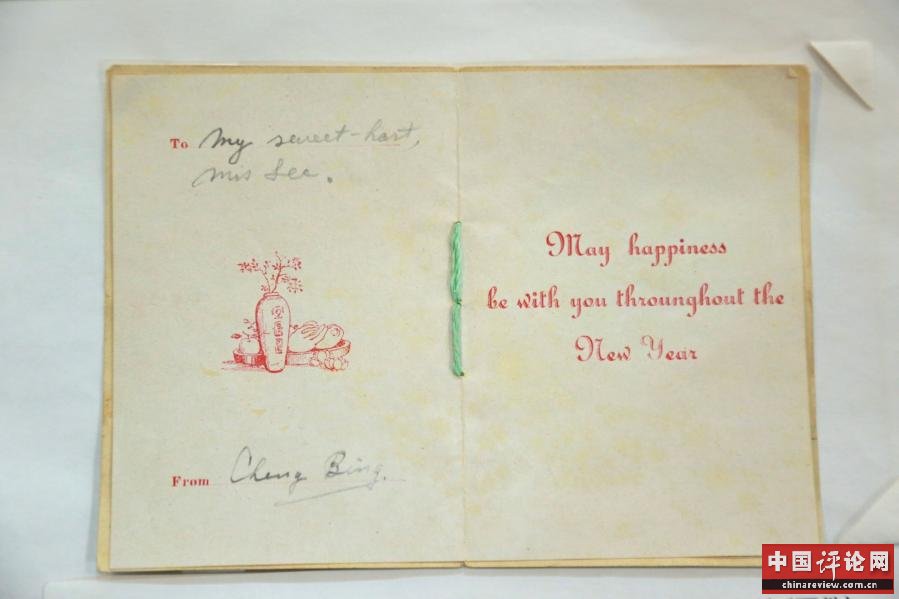 To My sweet-hart,
Mis Lee.
From Cheng Bing.
May happiness
be with you throunghout the
New Year
中国评论网
chinareview.com.cn